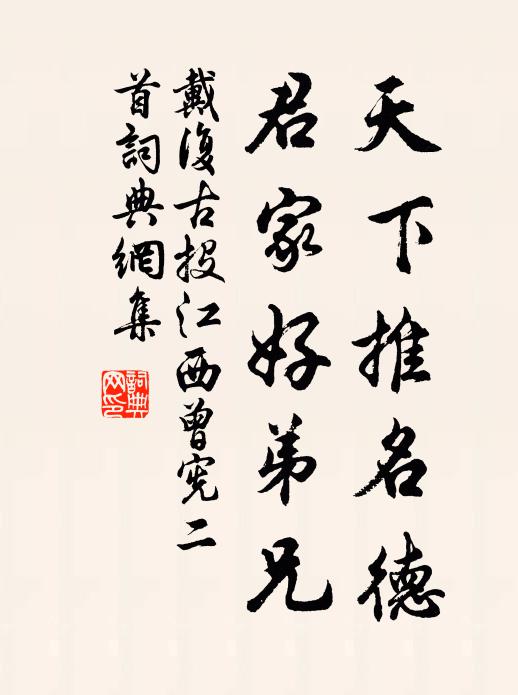 天下推名德
君家好弟兄
戴復古投江西曾宪二
首詞典網集
詞典
网印